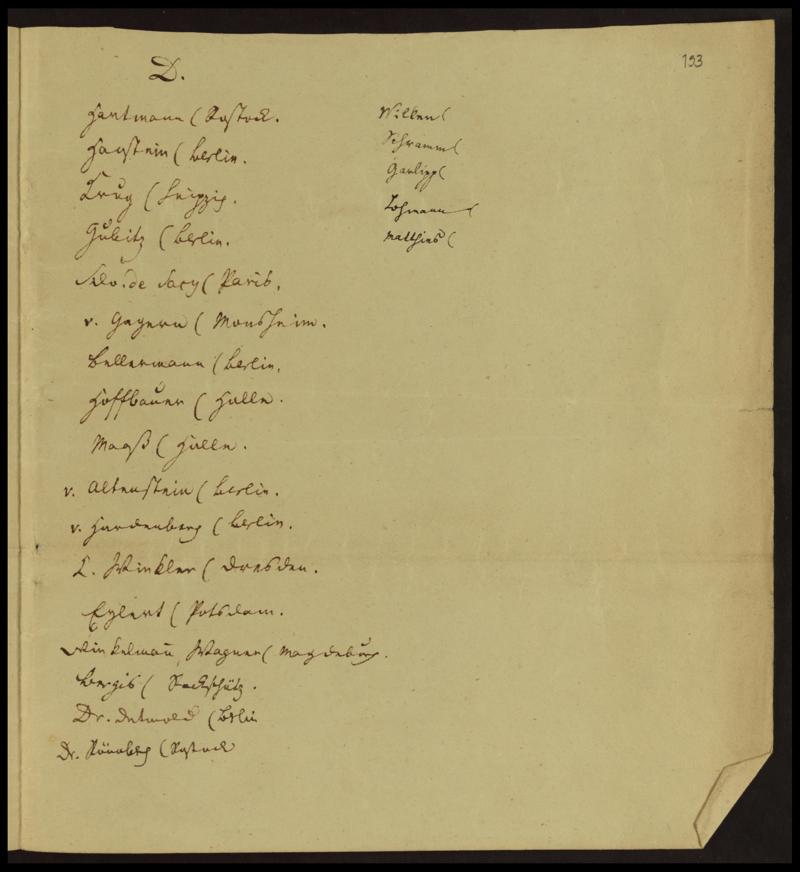 193
D.
Hartmann (Rostock.
Hanstein (Berlin.
Krug (Leipzig.
Gubitz (Berlin.
Silv. de Sacy (Paris.
v. Gagern (Monsheim.
Bellermann (Berlin.
Hoffbauer (Halle.
Maaß (Halle.
v. Altenstein (Berlin.
v. Hardenberg (Berlin.
Winkler (Dresden.
Eylert (Potsdam.
Winkelmañ, Wagner (Magdeburg.
Dr. Detmold (Berlin
Dr. Nürnberg (Rostock
Wilken (
Schramm (
Garlipp (
Lohmann (
Matthias (